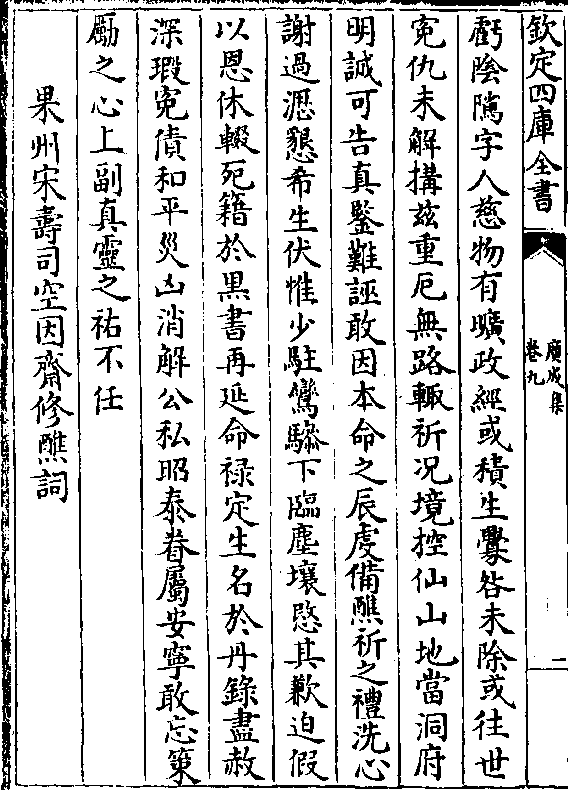 欽定四庫全書
廣成集
卷九
二
虧陰隲字人慈物有曠政經或積生釁咎未除或往世
寃仇未解搆兹重厄無路輙祈况境控仙山地當洞府
明誠可告真鑒難誣敢因本命之辰虔備醮祈之禮洗心
謝過瀝懇希生伏惟少駐鸞驂下臨塵壤愍其歉迫假
以恩休輟死籍於黒書再延命禄定生名於丹錄盡赦
深瑕寃債和平災凶消解公私昭泰眷屬安寧敢忘策
勵之心上副真靈之祐不任
果州宋壽司空因齋修醮詞